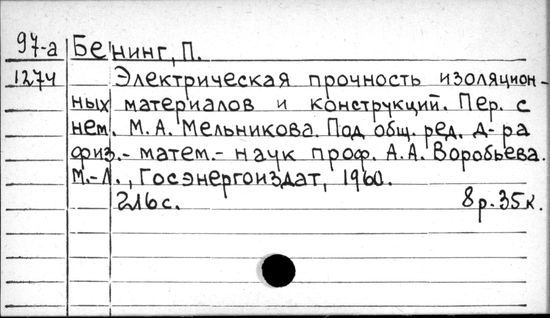 97-а Бенинг, П.
1274 Электрическая прочность изоляцион-
ных материалов и конструкций. Пер. с
нем. М.А. Мельникова. Под общ. ред. д-ра
физ.-матем.-наук проф. А.А. Воробьева.
М.-Л., Госэнергоиздат, 1960.
216 с. 8 р. 35 к.